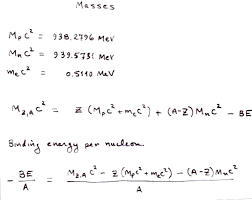 Masses
MₚC² = 938.2796 MeV
MₙC² = 939.5731 MeV
mₑC² = 0.5110 MeV
M_{Z,A}C² = Z (MₚC² + mₑC²) + (A-Z) MₙC² - BE
Binding energy per nucleon
- BE/A = (M_{Z,A}C² - Z (MₚC² + mₑC²) - (A-Z) MₙC²)/A